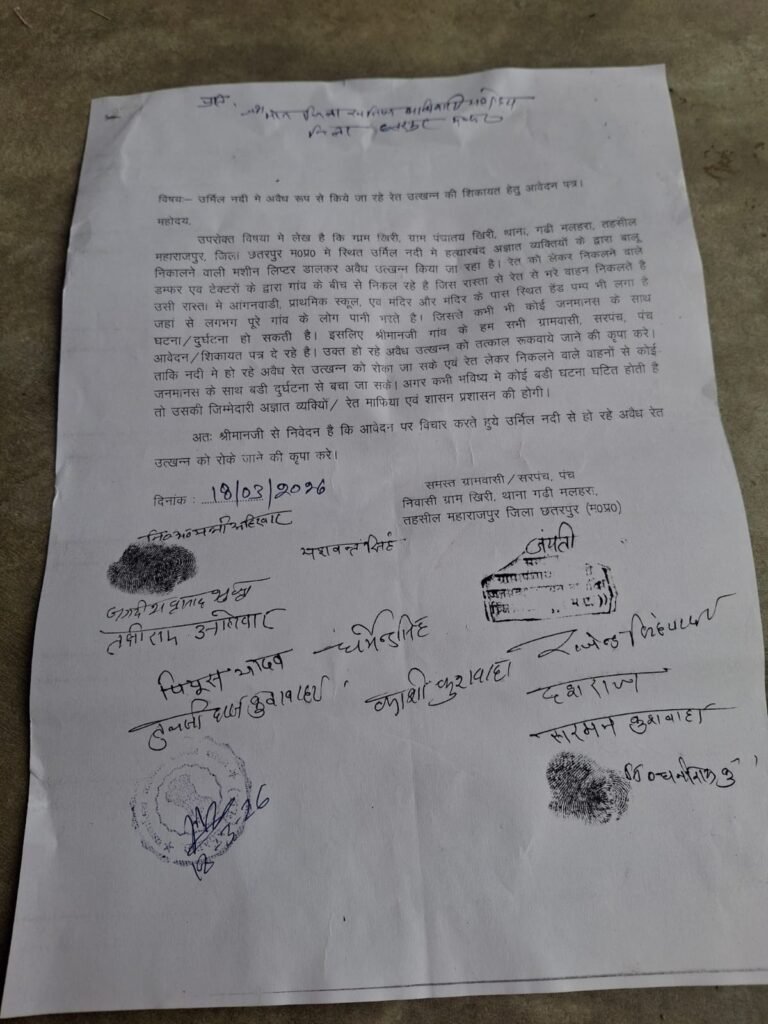 प्रति,
जिला
विषयः– उर्मिल नदी मे अवैध रूप से किये जा रहे रेत उत्खन्न की शिकायत हेतु आवेदन पत्र।
महोदय,
उपरोक्त विषया मे लेख है कि गा्म खिरी, ग्राम पंचातय खिरी, थाना, गढी मलहरा, तहसील
महाराजपुर, जिला छतरपुर म0प्र0 मे स्थित उर्मिल नदी मे हत्यारबंद अज्ञात व्यक्तियों के द्वारा बालू
निकालने वाली मशीन लिप्टर डालकर अवैध उत्खन्न किया जा रहा है। रेत को लेकर निकलने वाले
डम्फर एव टेक्टरों के द्वारा गांव के बीच से निकल रहे है जिस रास्ता से रेत से भरे वाहन निकलते है
उसी रास्ता मे आंगनवाडी, प्राथमिक स्कूल, एव मंदिर और मंदिर के पास स्थित हेंड पम्प भी लगा है
जहां से लगभग पूरे गांव के लोग पानी भरते है। जिससे कभी भी कोई जनमानस के साथ
घटना/दुर्घटना हो सकती है। इसलिए श्रीमानजी गांव के हम सभी ग्रामवासी, सरपंच, पंच
आवेदन/शिकायत पत्र दे रहे है। उक्त हो रहे अवैध उत्खन्न को तत्काल रूकवाये जाने की कृपा करे।
ताकि नदी मे हो रहे अवैध रेत उत्खन्न को रोका जा सके एवं रेत लेकर निकलने वाले वाहनों से कोई
जनमानस के साथ बडी दुर्घटना से बचा जा सके। अगर कभी भविष्य मे कोई बडी घटना घटित होती है
तो उसकी जिम्मेदारी अज्ञात व्यक्यिों/ रेत माफिया एवं शासन प्रशासन की होगी।
अतः श्रीमानजी से निवेदन है कि आवेदन पर विचार करते हुये उर्मिल नदी से हो रहे अवैध रेत
उत्खन्न को रोके जाने की कृपा करे।
दिनांक : 18/03/2026
समस्त ग्रामवासी/सरपंच, पंच
निवासी ग्राम खिरी, थाना गढी मलहरा,
तहसील महाराजपुर जिला छतरपुर (म0प्र0)
यशवन्त सिंह
जयंती
धर्मेन्द्र सिंह
पियूस यादव
काशी कुशवाहा
दशराज
सरमन कुशवाहा
18-3-26